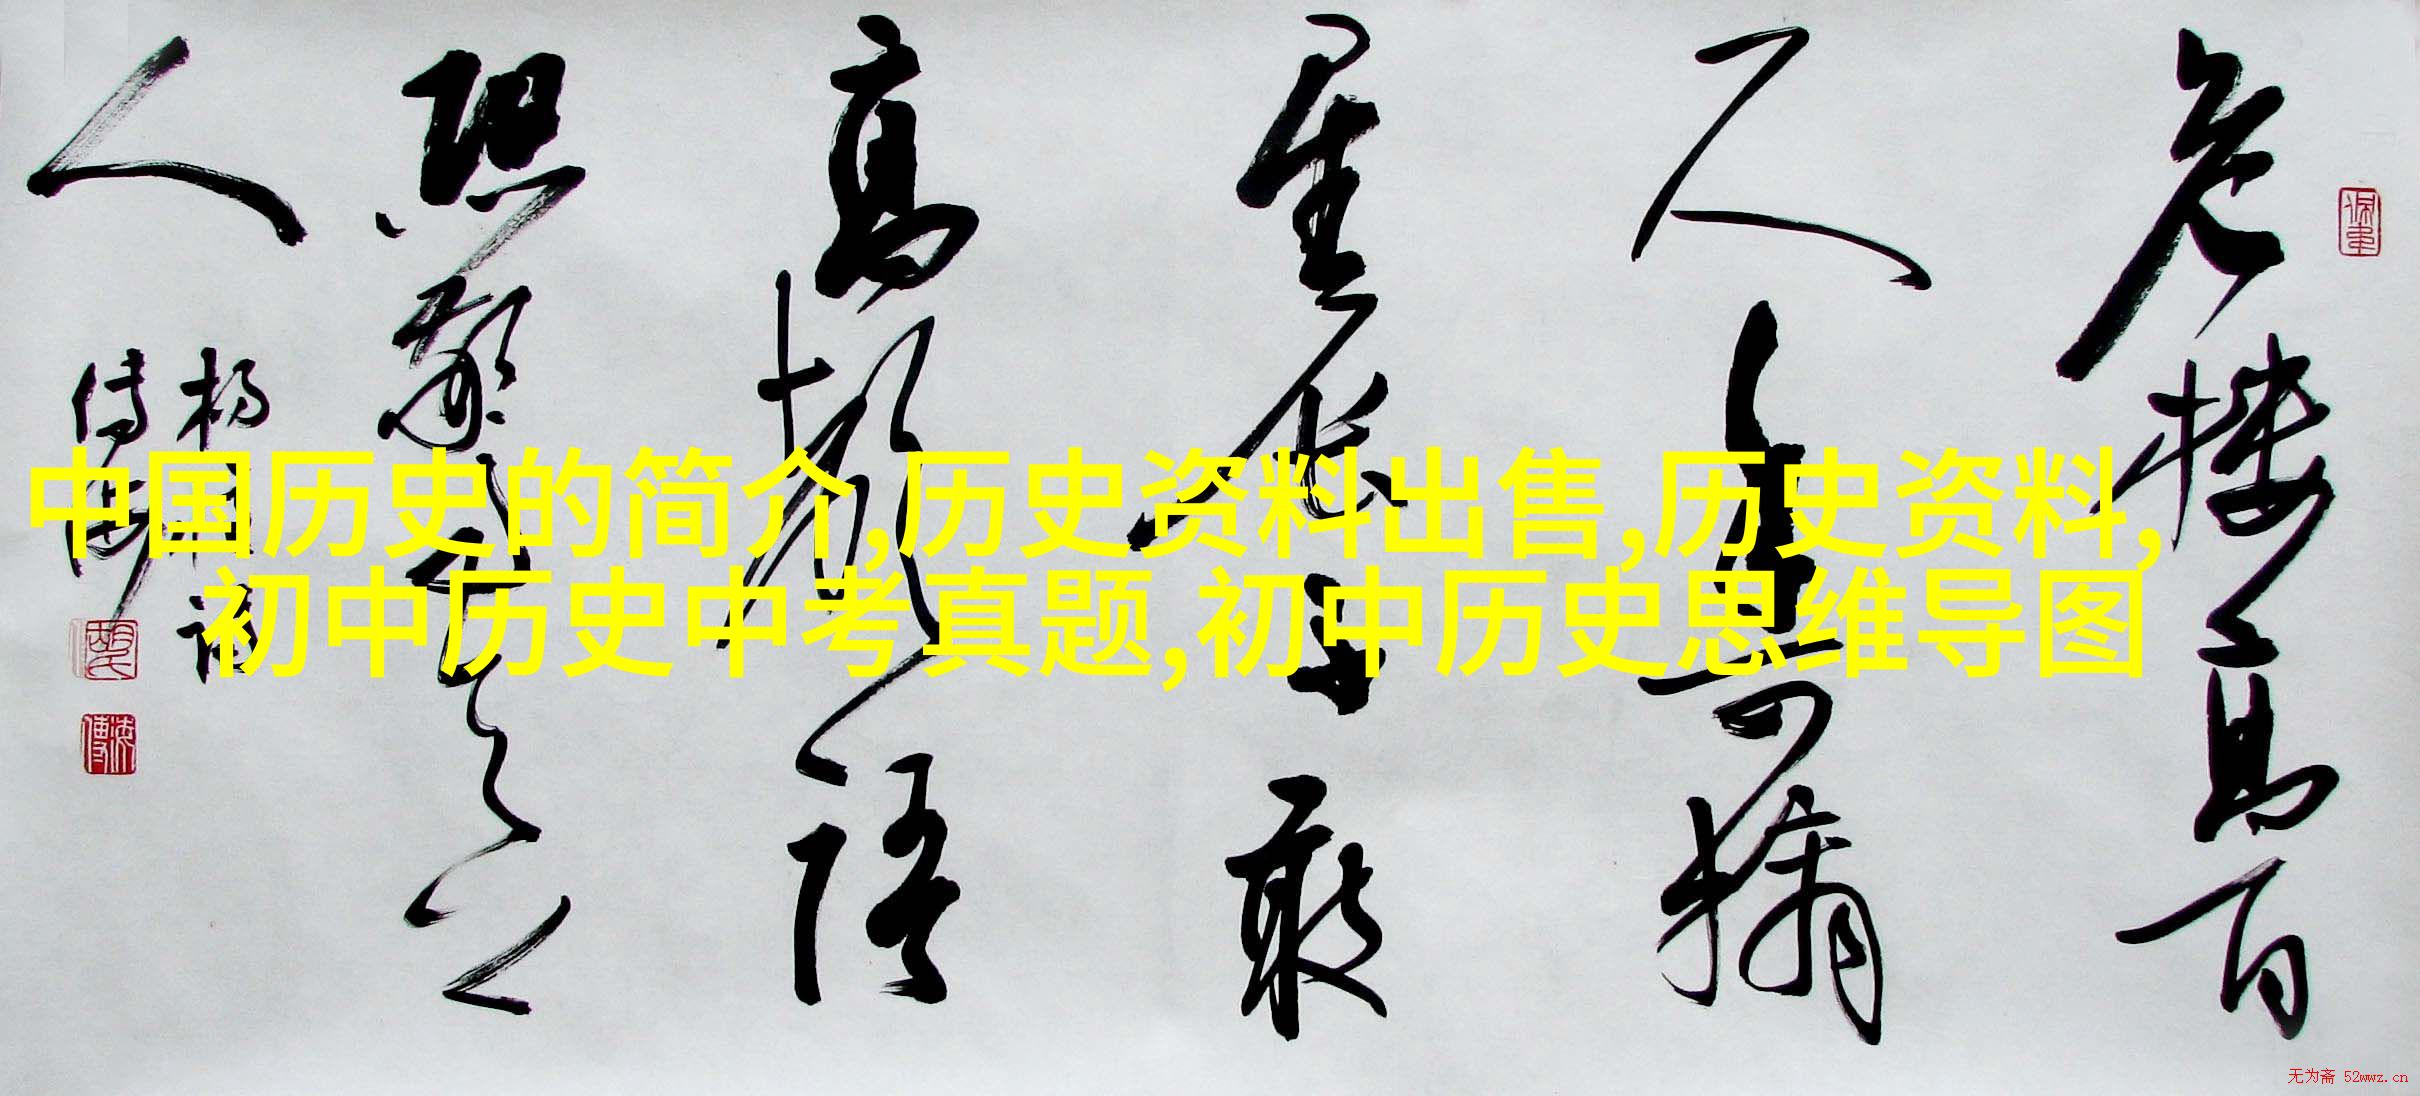 危楼高百
尺手可摘
星辰不敢
高声语
恐惊天上
人
中国历史的简介,历史资料出售,历史资料,
初中历史中考真题,初中历史思维导图
无为斋 52wwz.cn